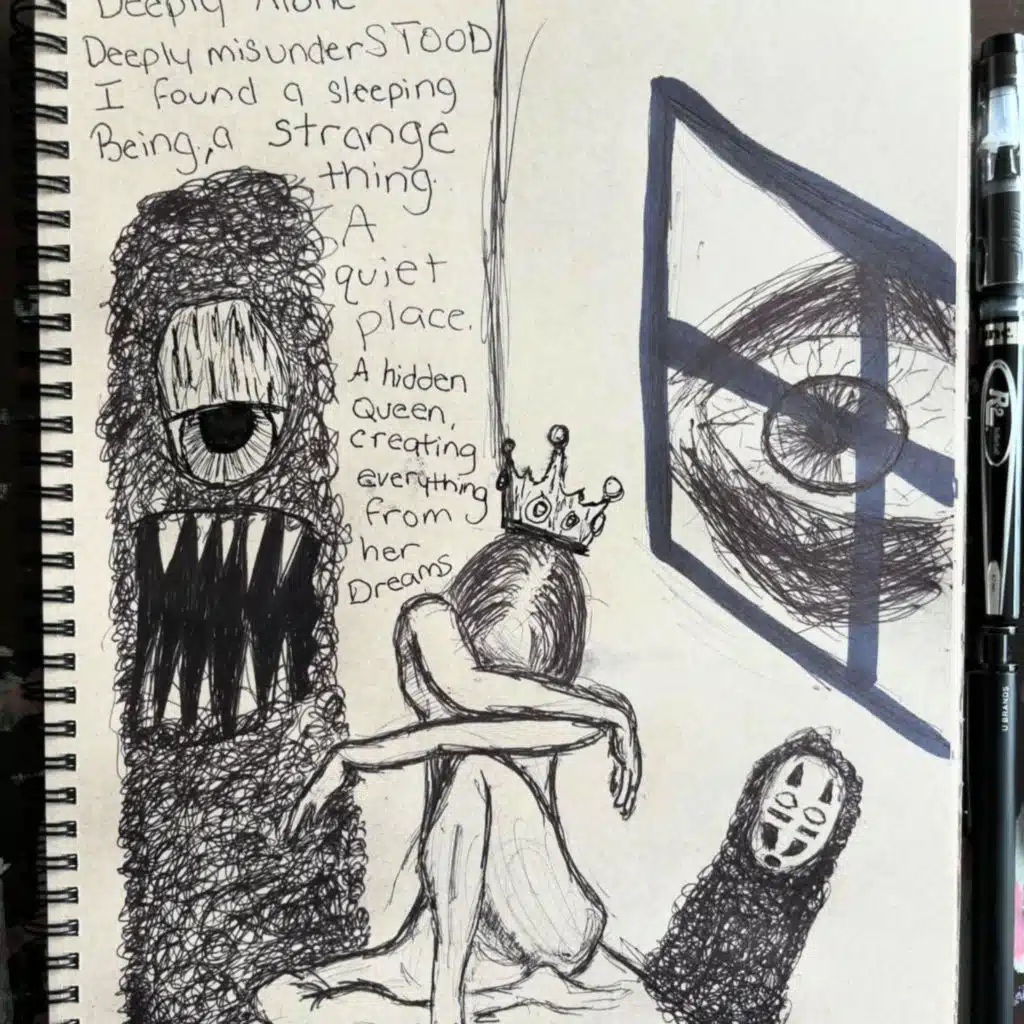 Deeply Alone
Deeply misunderSTOOD
I found a sleeping
Being, a strange
thing.
A
quiet
place.
A hidden
Queen,
creating
everything
from
her
Dreams
R2
U BRANDS